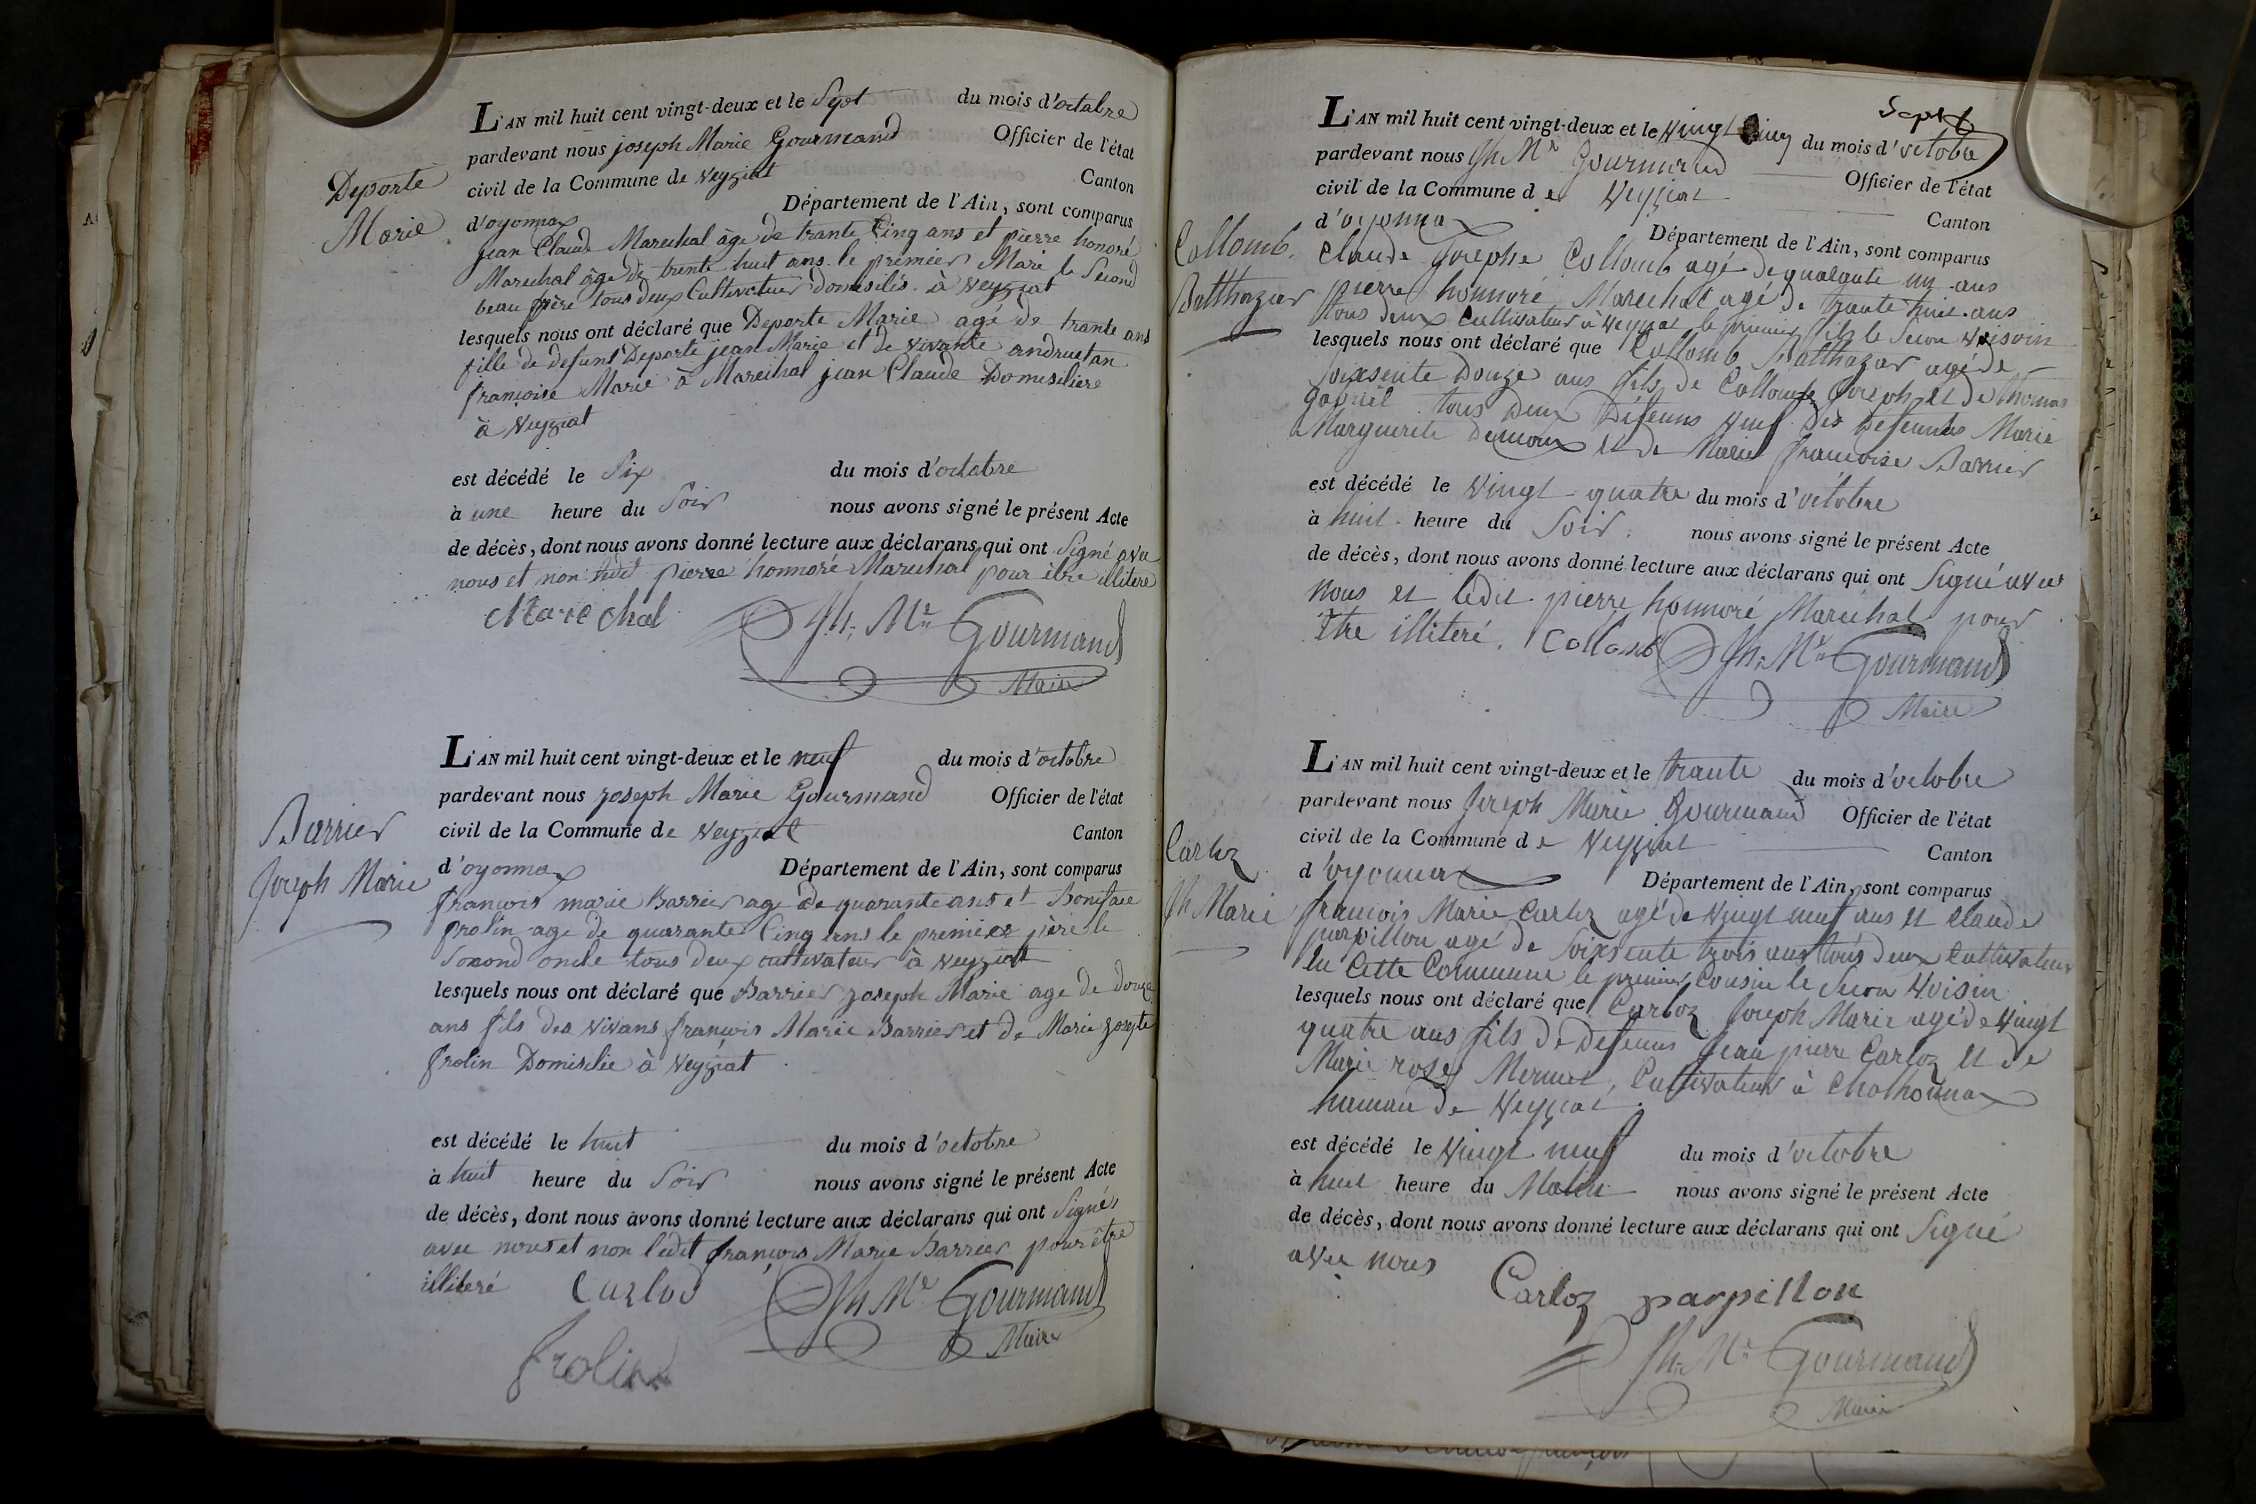 Deporte
Marie
L'AN mil huit cent vingt-deux et le Sept du mois d'octobre
pardevant nous joseph Marie Gourmand Officier de l'état
civil de la Commune de Veyziat Canton
d'oyonnax Département de l'Ain, sont comparus
jean Claude Marechal âge de trante Cinq ans et pierre honoré
Marechal âge de trente huit ans le premier Mari le Second
beau frère tous deux Cultivateur Domisiliés à Veyziat
lesquels nous ont déclaré que Deporte Marie agé de trante ans
fille de defunt Deporte jean Marie et de vivante
françoise Marie à Maréchal jean Claude Domisiliere
à Veyziat
est décédé le Six du mois d'octobre
à une heure du Soir nous avons signé le présent Acte
de décès, dont nous avons donné lecture aux déclarans qui ont Signé avec
nous et non pierre honnoré Marechal pour être illiteré
Marechal Jh: Mie Gourmand
Maire
Barrier
Joseph Marie
L'AN mil huit cent vingt-deux et le neuf du mois d'octobre
pardevant nous joseph Marie Gourmand Officier de l'état
civil de la Commune de Veyziat Canton
d'oyonnax Département de l'Ain, sont comparus
françois marie Barrier age de quarante ans et Boniface
frolin age de quarante Cinq ans le premier père le
Second oncle tous deux cultivateur à Veyziat
lesquels nous ont déclaré que Barrier joseph Marie age de douze
ans fils des vivans françois Marie Barrier et de Marie josepte
frolin Domisilie à Veyziat
est décédé le huit du mois d'octobre
à huit heure du Soir nous avons signé le présent Acte
de décès, dont nous avons donné lecture aux déclarans qui ont Signés
avec nous et non ledit françois Marie Barrier pour être
illiteré Jh Mie Gourmand
Maire
frolin
Sept
Collomb
Balthazar
L'AN mil huit cent vingt-deux et le Vingt Cinq du mois d'octobre
pardevant nous Jh Mie Gourmand Officier de l'état
civil de la Commune de Veyziat Canton
d'oyonnax Département de l'Ain, sont comparus
Claude Josephe Collomb agé de quarante un ans
pierre honnoré Marechal agé de trante huit ans
tous deux Cultivateur à Veyziat le premier fils le Secon Voisoin
lesquels nous ont déclaré que Collomb Balthazar agé de
soixsente Douze ans fils de Collomb Joseph et de Thomas
tous Deux Défunns Veuf Des Defuntes Marie
Marguerite et de Marie françoise Barrier
est décédé le Vingt-quatre du mois d'octobre
à huit heure du Soir nous avons signé le présent Acte
de décès, dont nous avons donné lecture aux déclarans qui ont Signé avec
Nous et ledit pierre honnoré Marechal pour
être illiteré. Collomb Jh: Mie Gourmand
Maire
Carloz
Jh Marie
L'AN mil huit cent vingt-deux et le trante du mois d'octobre
pardevant nous Joseph Marie Gourmand Officier de l'état
civil de la Commune de Veyziat Canton
d'oyonnax Département de l'Ain, sont comparus
francois Marie Carloz agé de Vingt neuf ans et Claude
parpillon agé de Soixsente trois ans tous deux Cultivateur
en Cette Commune le premier Cousin le Secon Voisin
lesquels nous ont déclaré que Carloz Joseph Marie agé de Vingt
quatre ans fils de Defunns Jean pierre Carloz et de
Marie rose Mermet, Cultivateur à Chathonnax
hameau de Veyziat.
est décédé le Vingt neuf du mois d'octobre
à huit heure du Matin nous avons signé le présent Acte
de décès, dont nous avons donné lecture aux déclarans qui ont Signé
avec nous
Carloz parpillon
Jh: Mie Gourmand
Maire